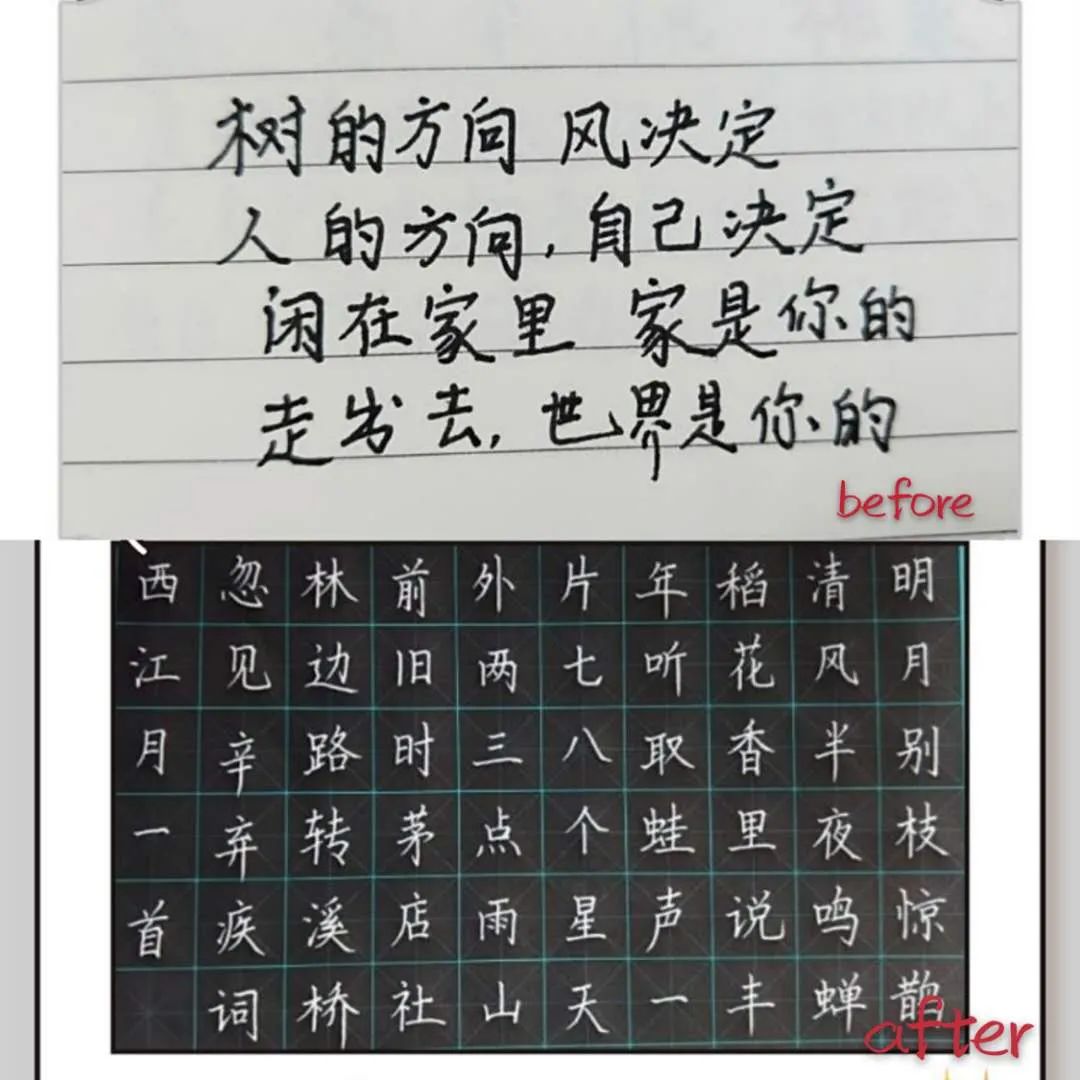 树的方向 风决定
人的方向,自己决定
闲在家里 家是你的
走出去,世界是你的
before
明月别枝惊鹊
清风半夜鸣蝉
稻花香里说丰
年听取蛙声一
片七八个星天
外两三点雨山
前旧时茅店社
林边路转溪桥
忽见辛弃疾词
西江月一首
after